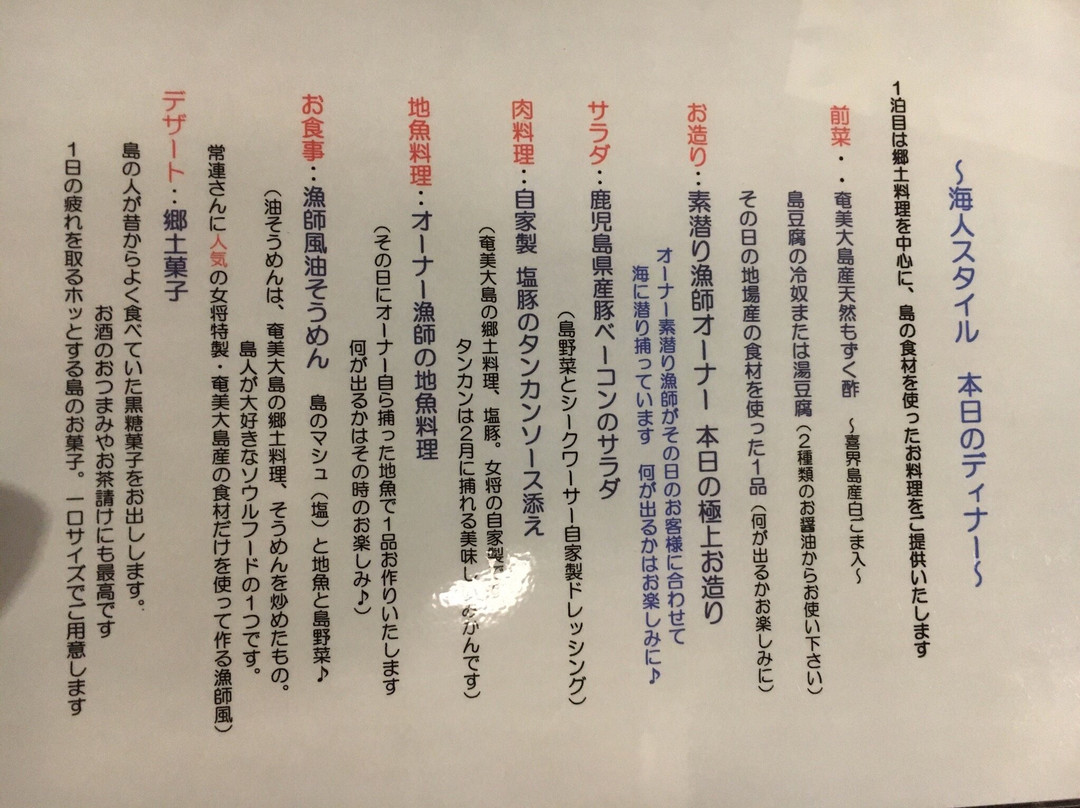 ～海人スタイル 本日のディナー～
1泊目は郷土料理を中心に、島の食材を使ったお料理をご提供いたします
前菜・・奄美大島産天然もずく酢 ～喜界島産白ごま入～
島豆腐の冷奴または湯豆腐（2種類のお醤油からお使い下さい）
その日の地場産の食材を使った1品（何が出るかお楽しみに）
お造り：素潜り漁師オーナー 本日の極上お造り
オーナー素潜り漁師がその日のお客様に合わせて
海に潜り捕っています 何が出るかはお楽しみに♪
サラダ：鹿児島県産豚ベーコンのサラダ
（島野菜とシークワーサー自家製ドレッシング）
肉料理：自家製 塩豚のタンカンソース添え
（奄美大島の郷土料理、塩豚。女将の自家製
タンカンは2月に捕れる美味し みかんです）
地魚料理：オーナー漁師の地魚料理
（その日にオーナー自ら捕った地魚で1品お作りいたします
何が出るかはその時のお楽しみ♪）
お食事：漁師風油そうめん 島のマシュ（塩）と地魚と島野菜♪
（油そうめんは、奄美大島の郷土料理、そうめんを炒めたもの。
島人が大好きなソウルフードの1つです。
常連さんに人気の女将特製・奄美大島産の食材だけを使って作る漁師風）
デザート：郷土菓子
島の人が昔からよく食べていた黒糖菓子をお出しします。
お酒のおつまみやお茶請けにも最高です
1日の疲れを取るホッとする島のお菓子。一口サイズでご用意します